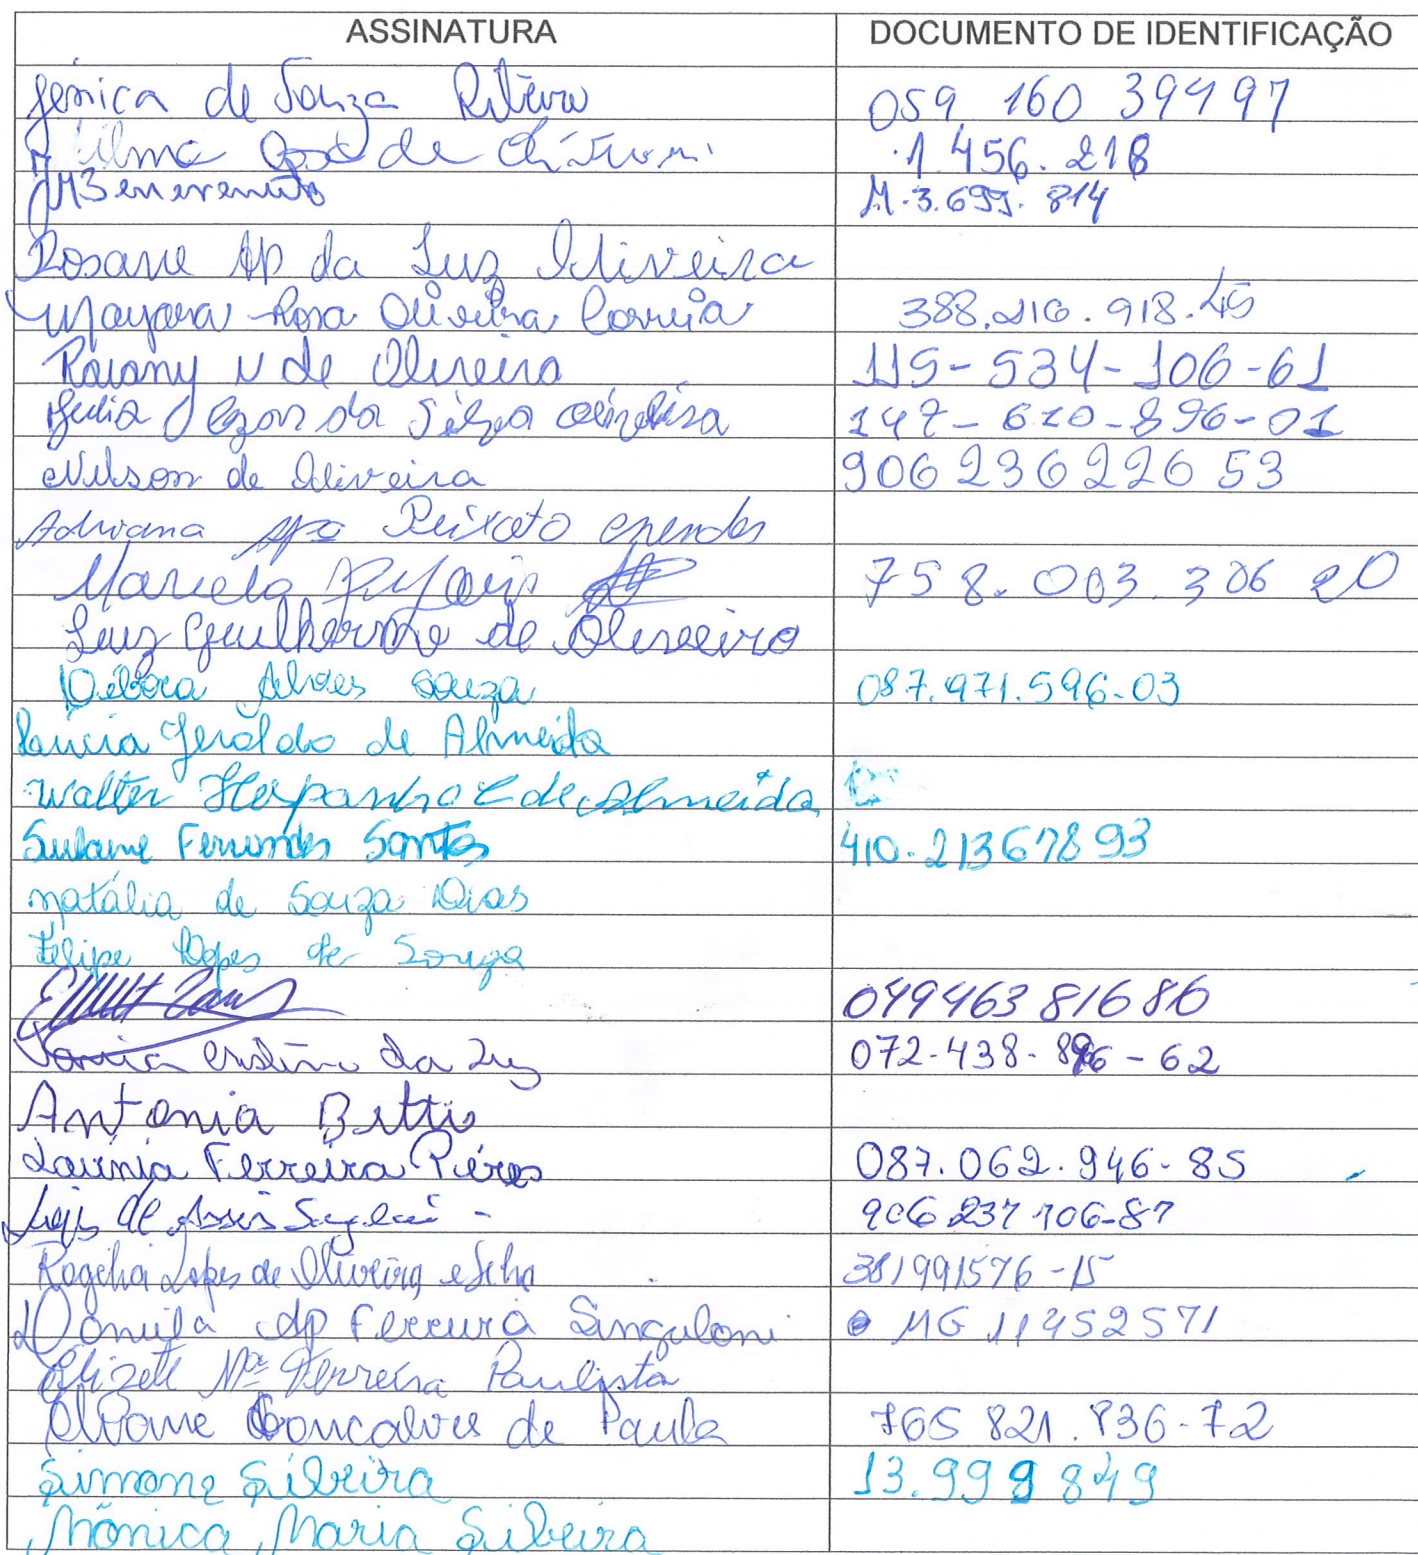 ASSINATURA DOCUMENTO DE IDENTIFICAÇÃO
Jénica de Souza Ribeiro 059 160 394 97
Vilma José de 1.456.218
M.3.699.814
Rosane Ap da Luz Oliveira
Mayara Rosa Oliveira Corrêa 388.216.918.45
Raiany N de Oliveira 115-534-106-61
Julia da Silva 147-610-896-01
Nilson de Oliveira 906 236 226 53
Adriana Apª Peixoto Mendes
Marcela 758.003.306 20
Luiz Guilherme de Oliveira
Débora Alves Souza 087.971.596-03
Geraldo de Almeida
Walter Hespanhol de Almeida
Fernandes Santos 410.213678 93
Natália de Souza Dias
Felipe Lopes de Souza
049463 816 86
Vania Cristina da Luz 072-438-896-62
Antonia Bittis
Lavinia Ferreira Pires 087.062.946-85
de Assis 906 237 106-87
Rogéria Lopes de Oliveira e Silva 381991576-15
Danila Ap Ferreira Singulani MG 11452571
Elizete Mª Ferreira Paulista
Elviane Goncalves de Paula 765 821.836-72
Simone Silveira 13.999 849
Mônica Maria Silveira